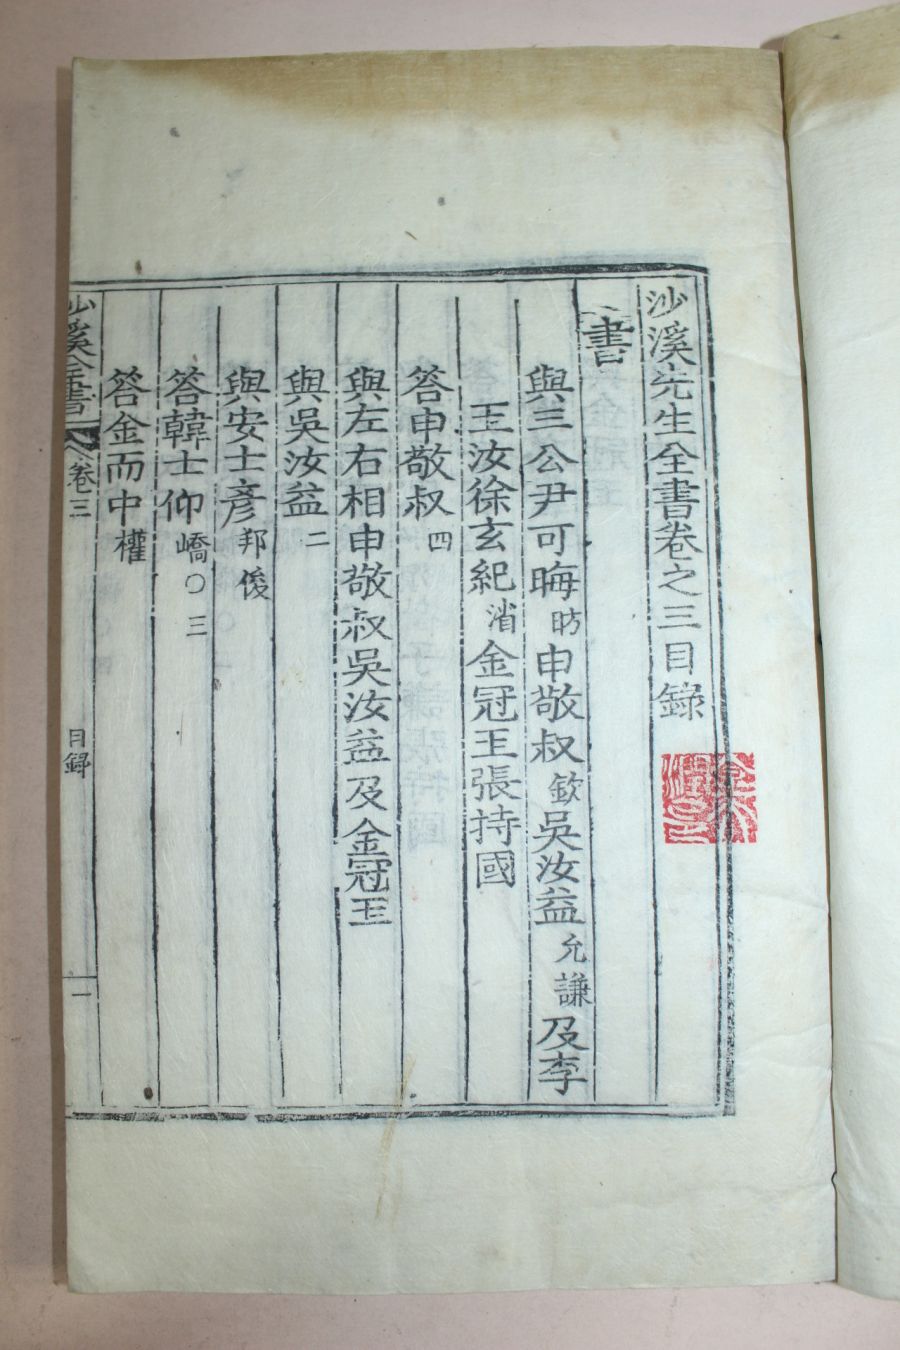 沙溪先生全書卷之三目錄
書
與三公尹可晦昉申敬叔欽吳汝益允謙及李
玉汝徐玄紀渻金冠玉張持國
答申敬叔四
與左右相申敬叔吳汝益及金冠玉
與吳汝益二
與安士彥邦俊
答韓士仰嶠〇三
答金而中權
沙溪全書 卷三 目録 一